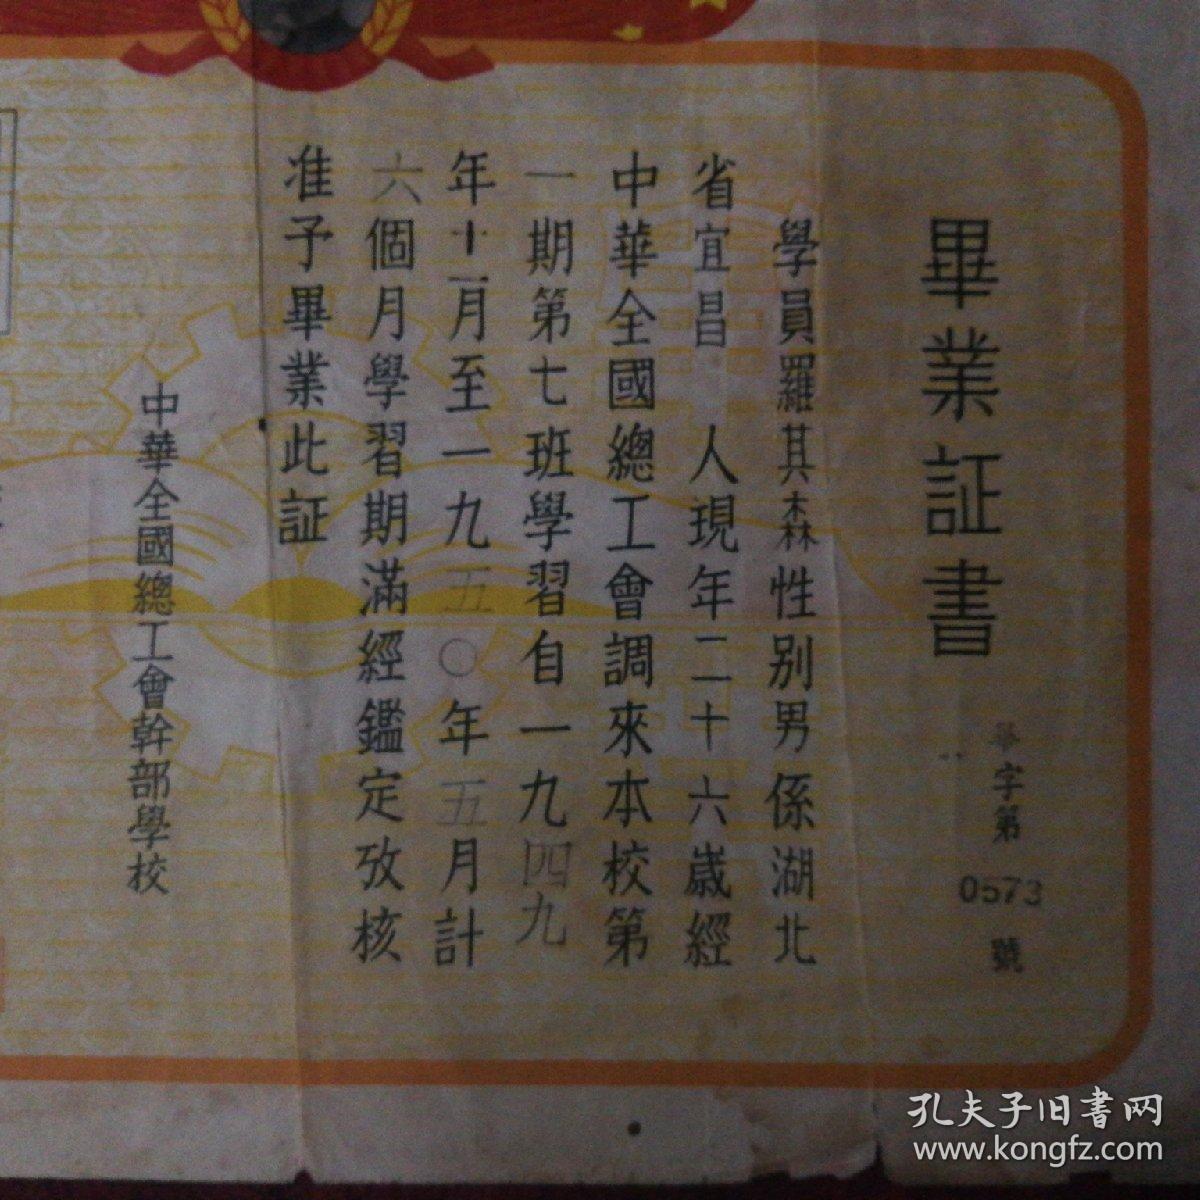 畢業証書
畢字第
0573
號
學員羅其森性別男係湖北
省宜昌 人現年二十六歲經
中華全國總工會調來本校第
一期第七班學習自一九四九
年十一月至一九五〇年五月計
六個月學習期滿經鑑定攷核
准予畢業此証
中華全國總工會幹部學校
孔夫子旧書网
www.kongfz.com